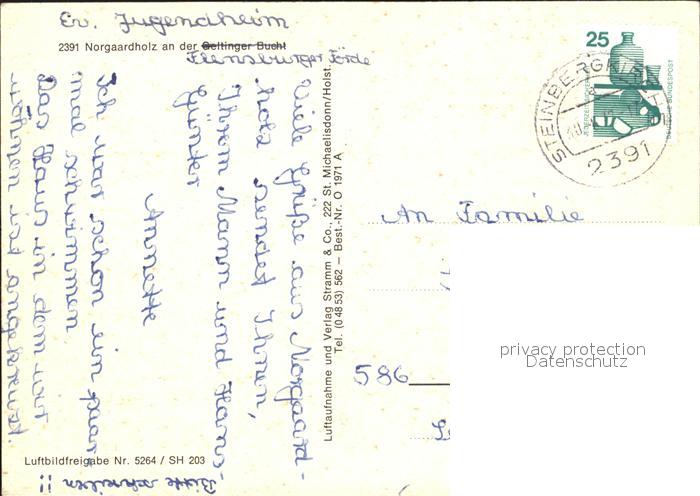 Ev. Jugendheim
2391 Norgaardholz an der Geltinger Bucht
Flensburger Förde
Viele Grüße aus Norgaard-
holz sendet Ihnen,
Ihrem Mann und Hans-
Günter
Annette
Ich war schon ein paar
mal schwimmen
Das Haus in dem wir
wohnen ist angekreuzt.
Bitte schreiben !!
Luftbildfreigabe Nr. 5264 / SH 203
Luftaufnahme und Verlag Stramm & Co., 222 St. Michaelisdonn/Holst.
Tel. (0 48 53) 562 – Best.-Nr. O 1971 A
25
DEUTSCHE BUNDESPOST
2391
An Familie
586
privacy protection
Datenschutz